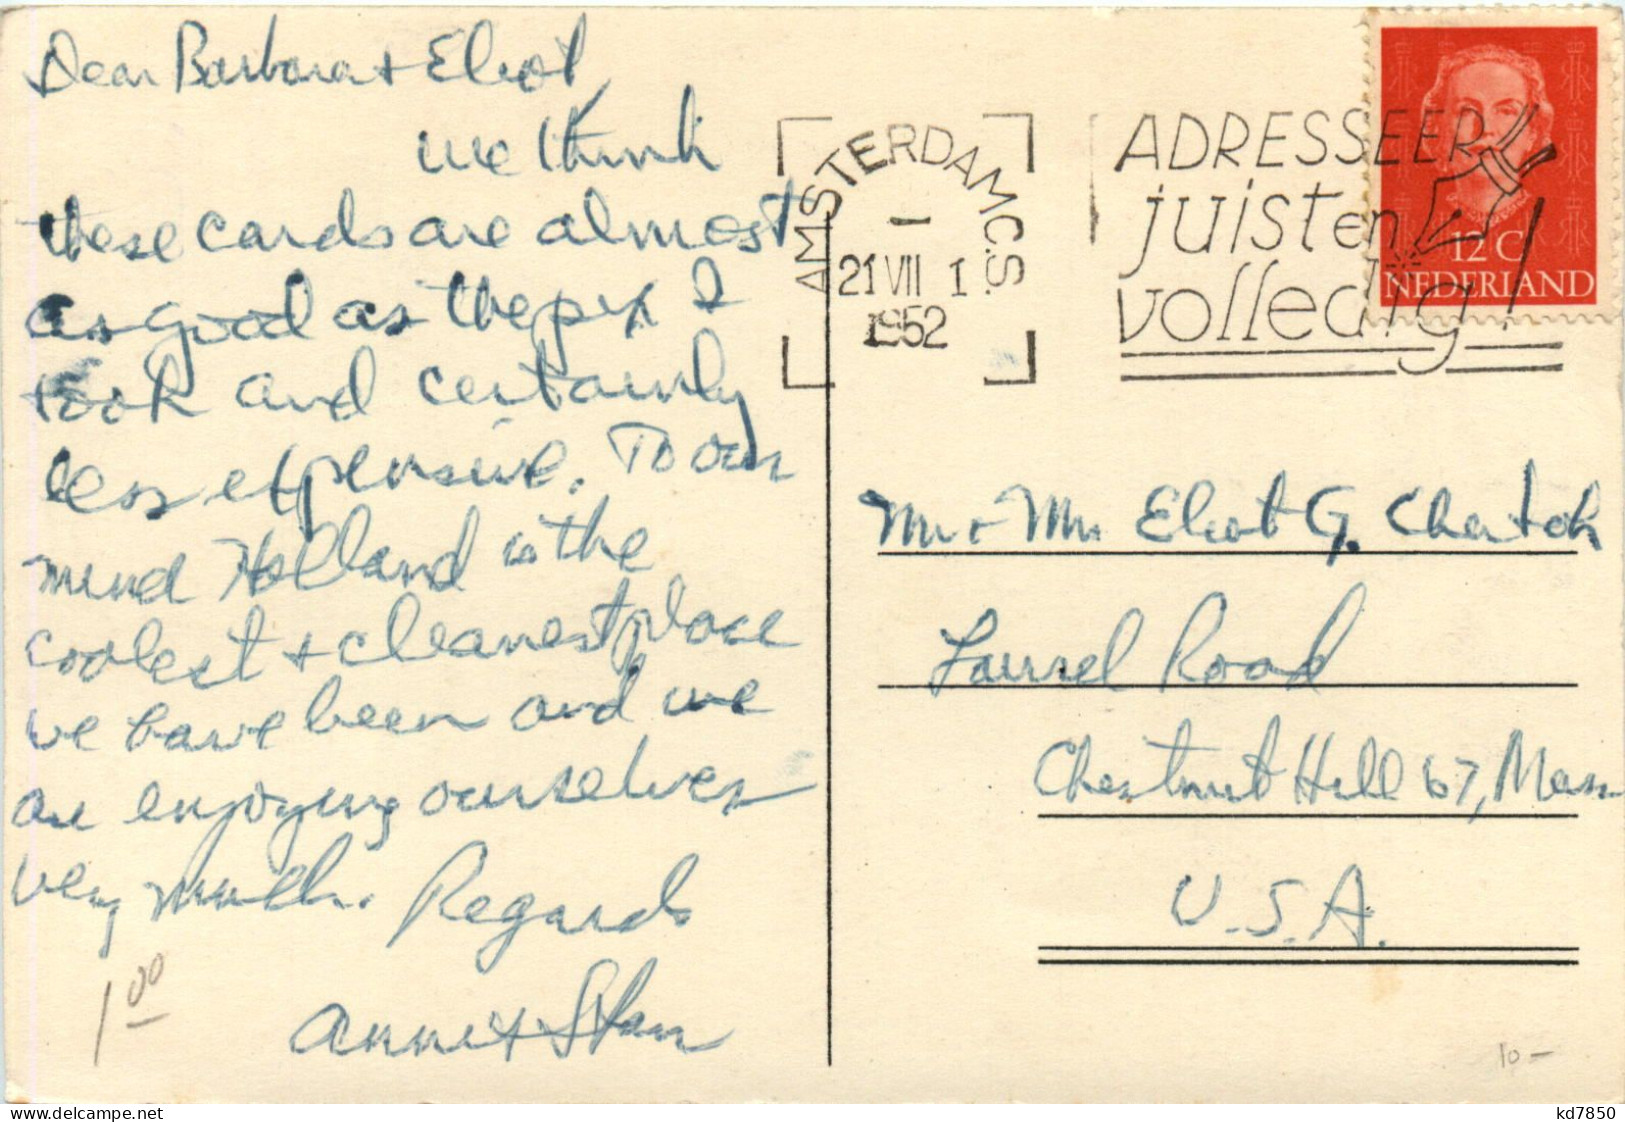 Dear Barbara + Eliot,
we think
these cards are almost
as good as the pix I
took and certainly
less expensive. To our
mind Holland is the
coolest + cleanest place
we have been and we
are enjoying ourselves
very much. Regards
Anne + Stan
1 00
AMSTERDAM C.S.
21 VII 1
1952
ADRESSEER
juist en
volledig!
12 C
NEDERLAND
Mr + Mrs Eliot G. Chertok
Laurel Road
Chestnut Hill 67, Mass
U.S.A.
10 -
www.delcampe.net
kd7850